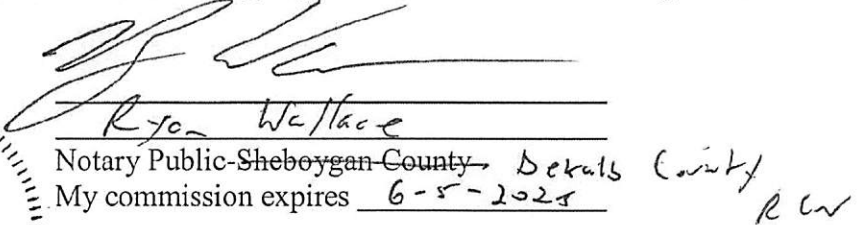 Ryan Wallace
Notary Public-Sheboygan County Dekalb County
My commission expires 6-5-2025
RW